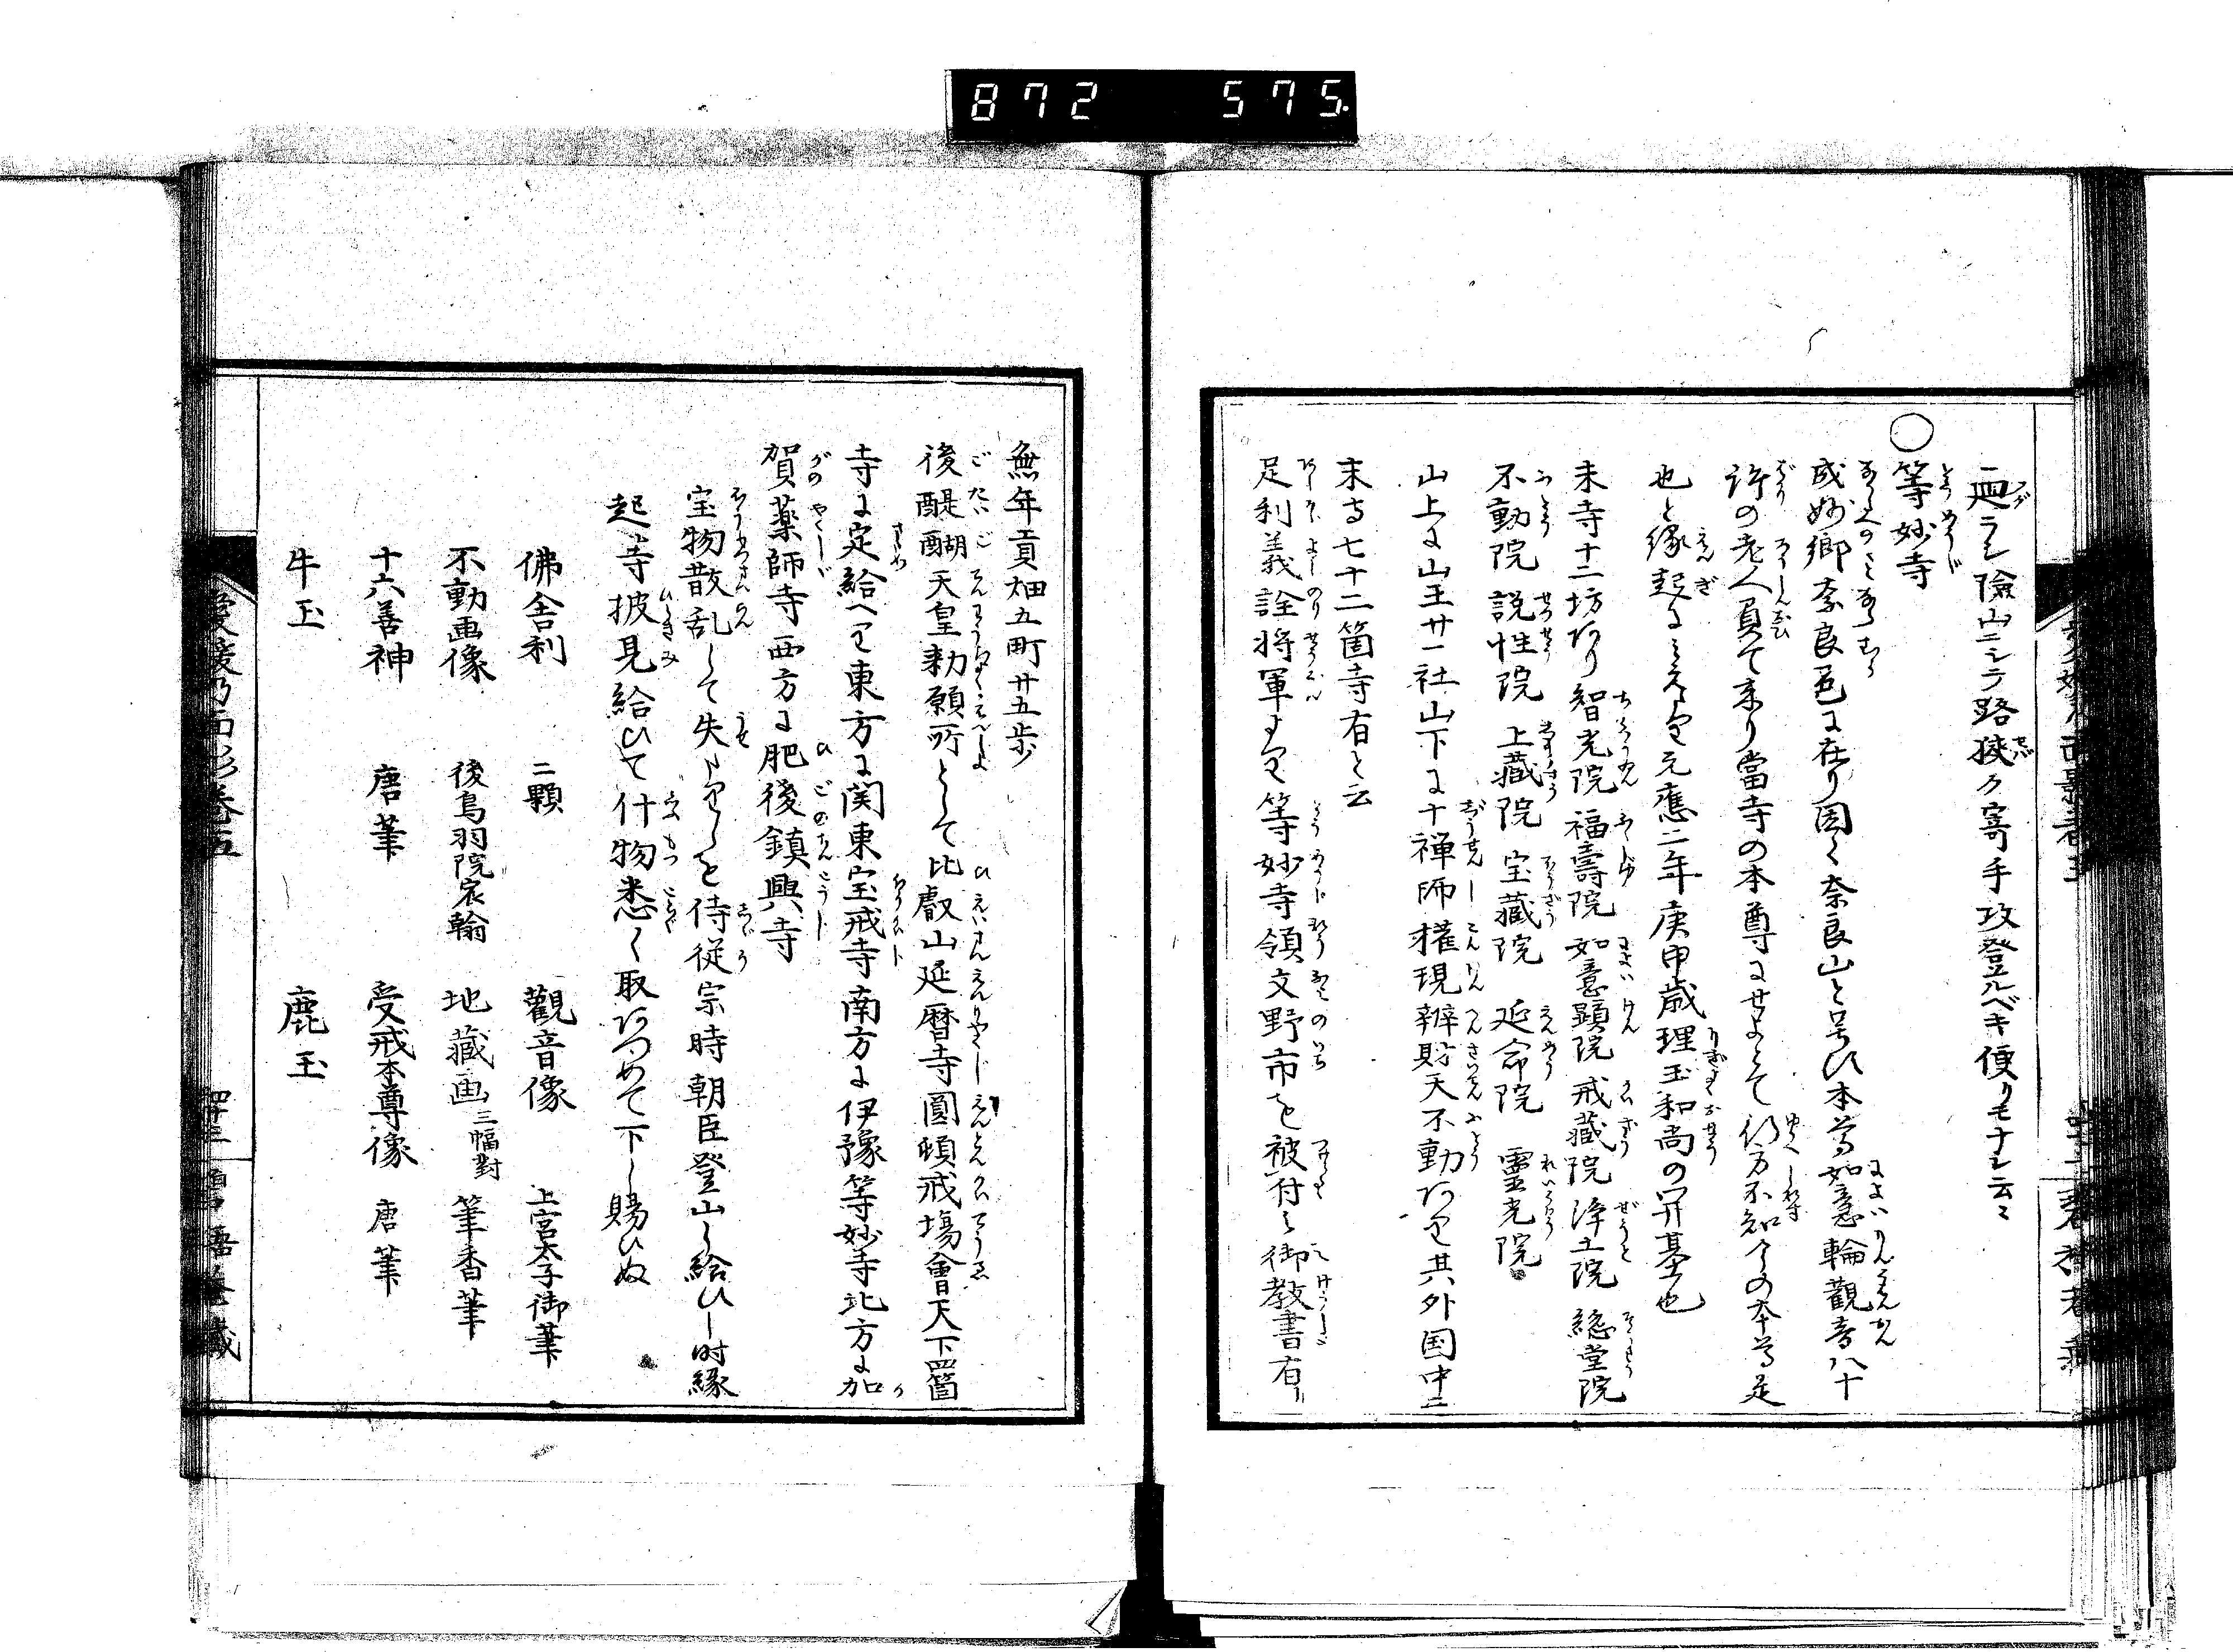 872 575
廻ラシ險山ニシテ路狹ク寄手攻登ルベキ便リモナシ云々
○等妙寺
成妙郷奈良邑に在り因て奈良山と号ひ本尊如意輪觀音八十
許の老人負て来り當寺の本尊にせよとて行方不知今の本尊是
也と緣起にみえたり元應二年庚申歳理玉和尚の開基也
末寺十二坊あり智光院福壽院如意顕院戒藏院淨土院総堂院
不動院説性院上藏院宝藏院延命院靈光院
山上に山王廿一社山下に十禅師権現辨財天不動あり其外国中ニ
末寺七十二箇寺有と云
足利義詮将軍より等妙寺領文野市を被付し御教書有リ
無年貢畑五町廿五歩
後醍醐天皇勅願所として比叡山延暦寺圓頓戒場會天下四箇
寺に定給へり東方に関東宝戒寺南方に伊豫等妙寺北方に加
賀薬師寺西方に肥後鎮興寺
宝物散乱して失たりしを侍従宗時朝臣登山し給ひし時縁
起等披見給ひて什物悉く取あつめて下し賜ひぬ
佛舎利 二顆 觀音像 上宮太子御筆
不動画像 後鳥羽院宸翰 地藏画 三幅對 筆香筆
十六善神 唐筆 受戒本尊像 唐筆
牛玉 鹿玉
愛媛乃面影巻五